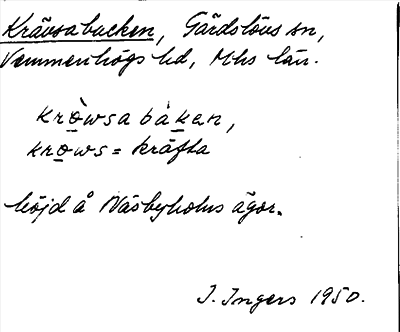 Krävsabacken, Gärdslövs sn,
Vemmenhögs hd, Mhs län.
kròwsa bàken,
krows = kräfta
höjd å Näsbyholms ägor.
I. Ingers 1950.